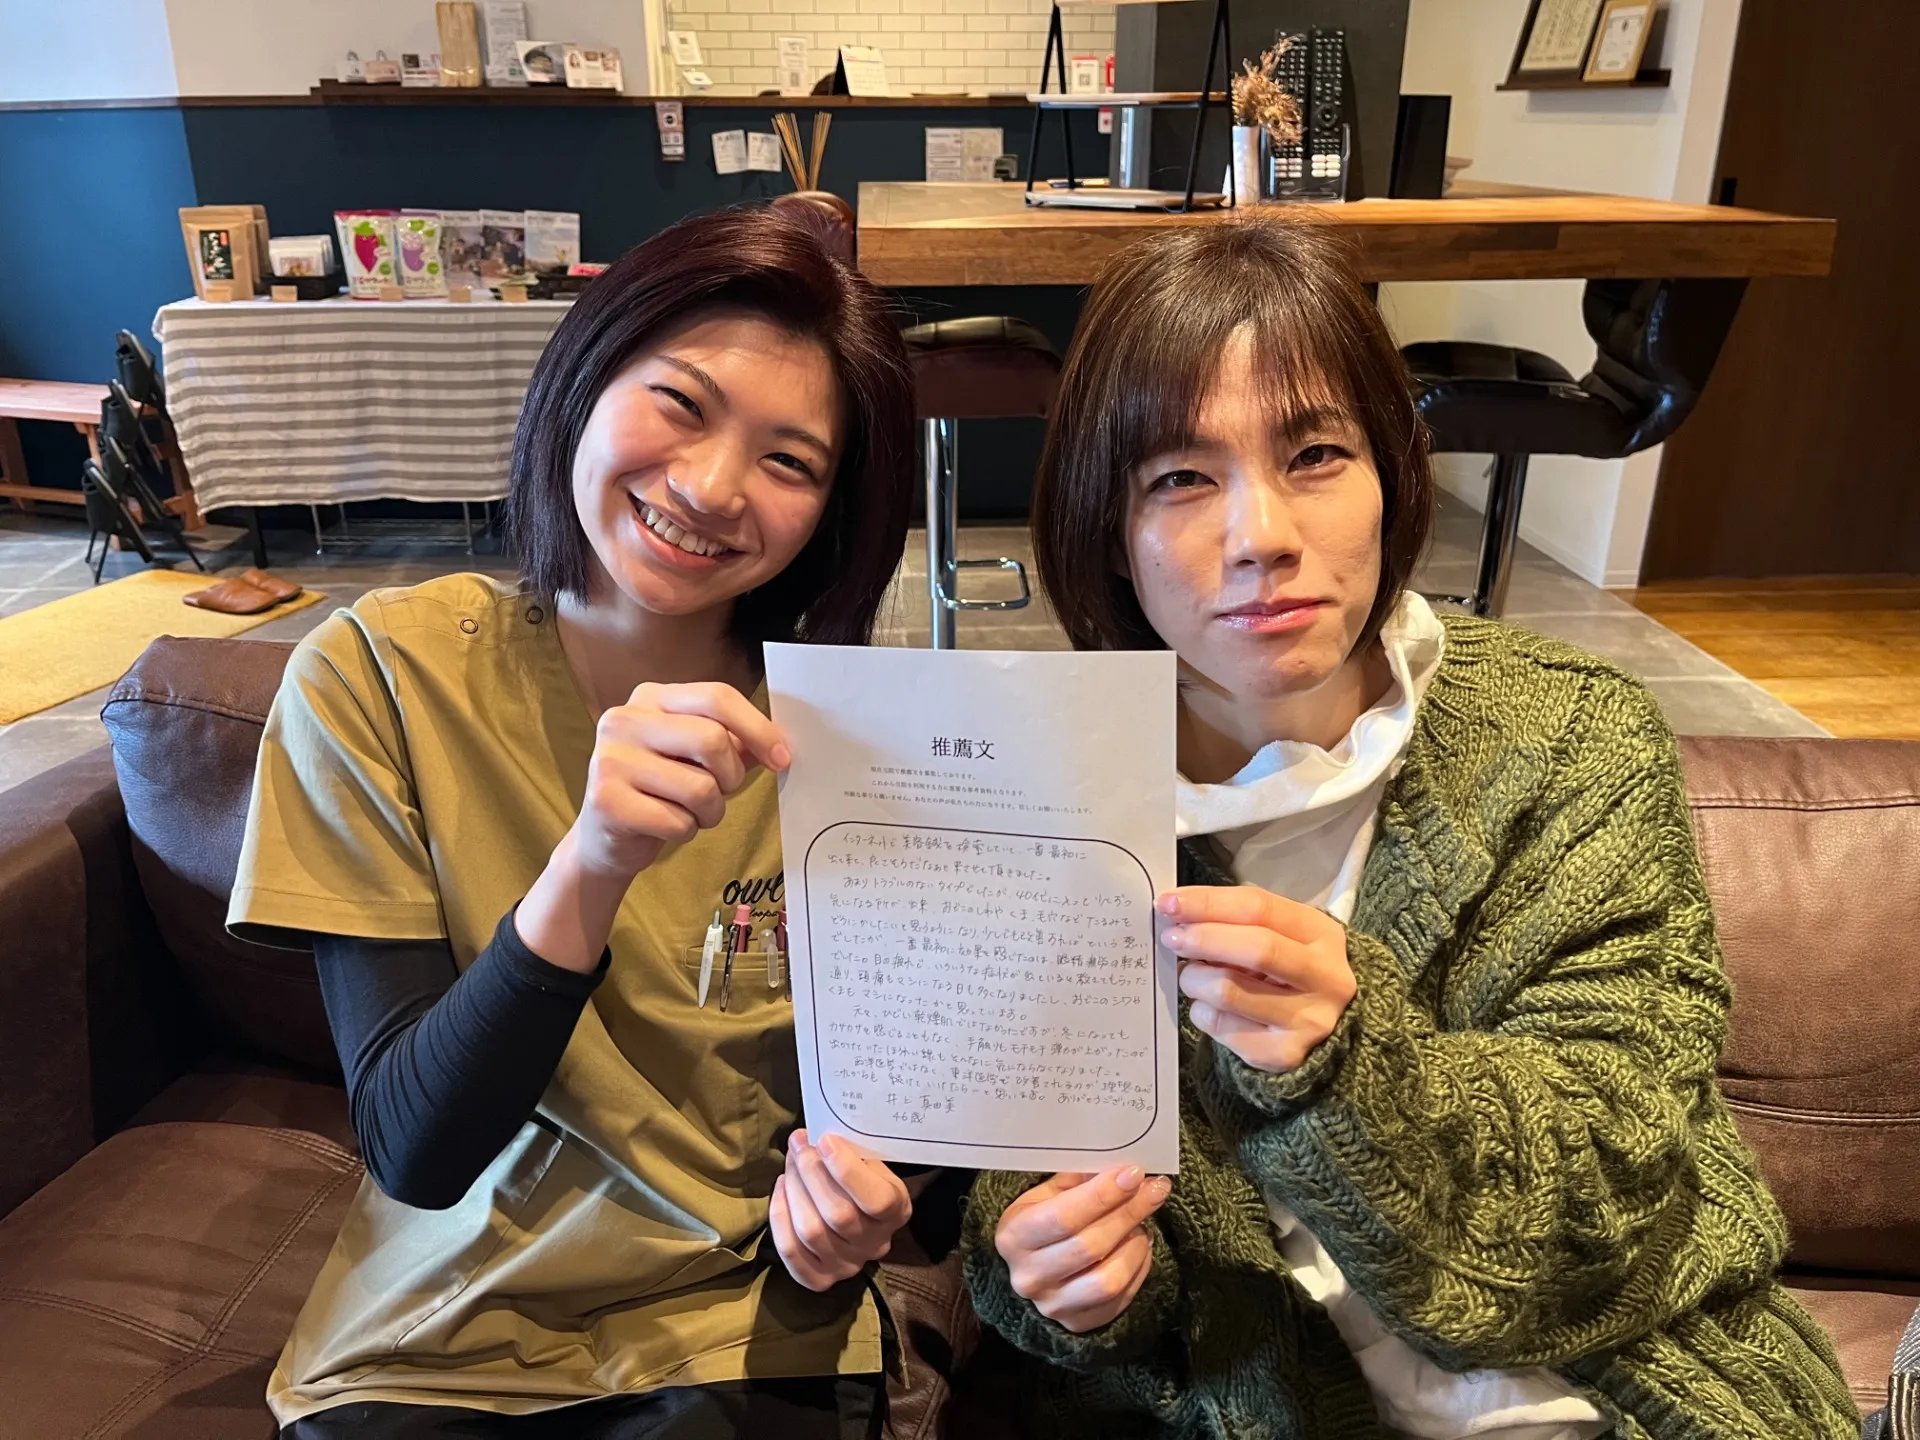 推薦文
現在当院で推薦文を募集しております。
これから当院を利用する方に重要な参考資料となります。
些細な事でも構いません。あなたの声が私たちの力になります。宜しくお願いいたします。
インターネットで美容鍼を検索していて、一番最初に
出て来て、良さそうだなぁと来させて頂きました。
あまりトラブルのないタイプでしたが、40代に入って少しずつ
気になる所が出来、おでこのしわやくま、毛穴などたるみを
どうにかしたいと思うようになり、少しでも改善あればという思い
でしたが、一番最初に効果を感じたのは、眼精疲労の軽減
でした。目の疲れで、いろいろな症状が出ていると教えてもらった
通り、頭痛もマシになる日も多くなりましたし、おでこのシワや
くまもマシになったかと思っています。
元々、ひどい乾燥肌ではなかったですが、冬になっても
カサカサを感じることもなく、手触りもモチモチ弾力が上がったので
出かけていたほうれい線もそんなに気にならなくなりました。
西洋医学ではなく、東洋医学で改善されるのが理想なので
これからも続けていけたら…と思います。ありがとうございます。
お名前 井上 真由美
年齢 46歳
owl